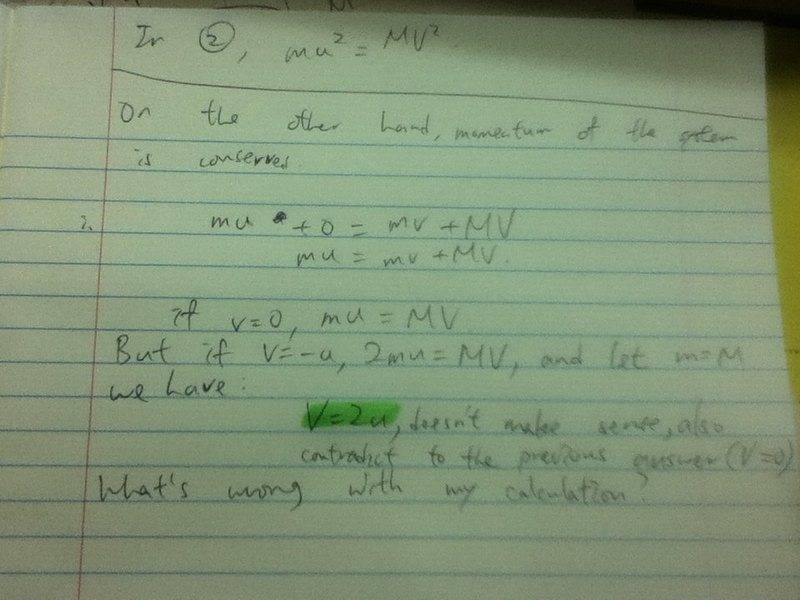 In ②, mu² = MV²
On the other hand, momentum of the system
is conserved.
mu + 0 = mv + MV
mu = mv + MV.
if v=0, mu = MV
But if v=-u, 2mu = MV, and let m=M
we have:
V=2u, doesn't make sense, also
contradict to the previous answer (V=0)
What's wrong with my calculation?